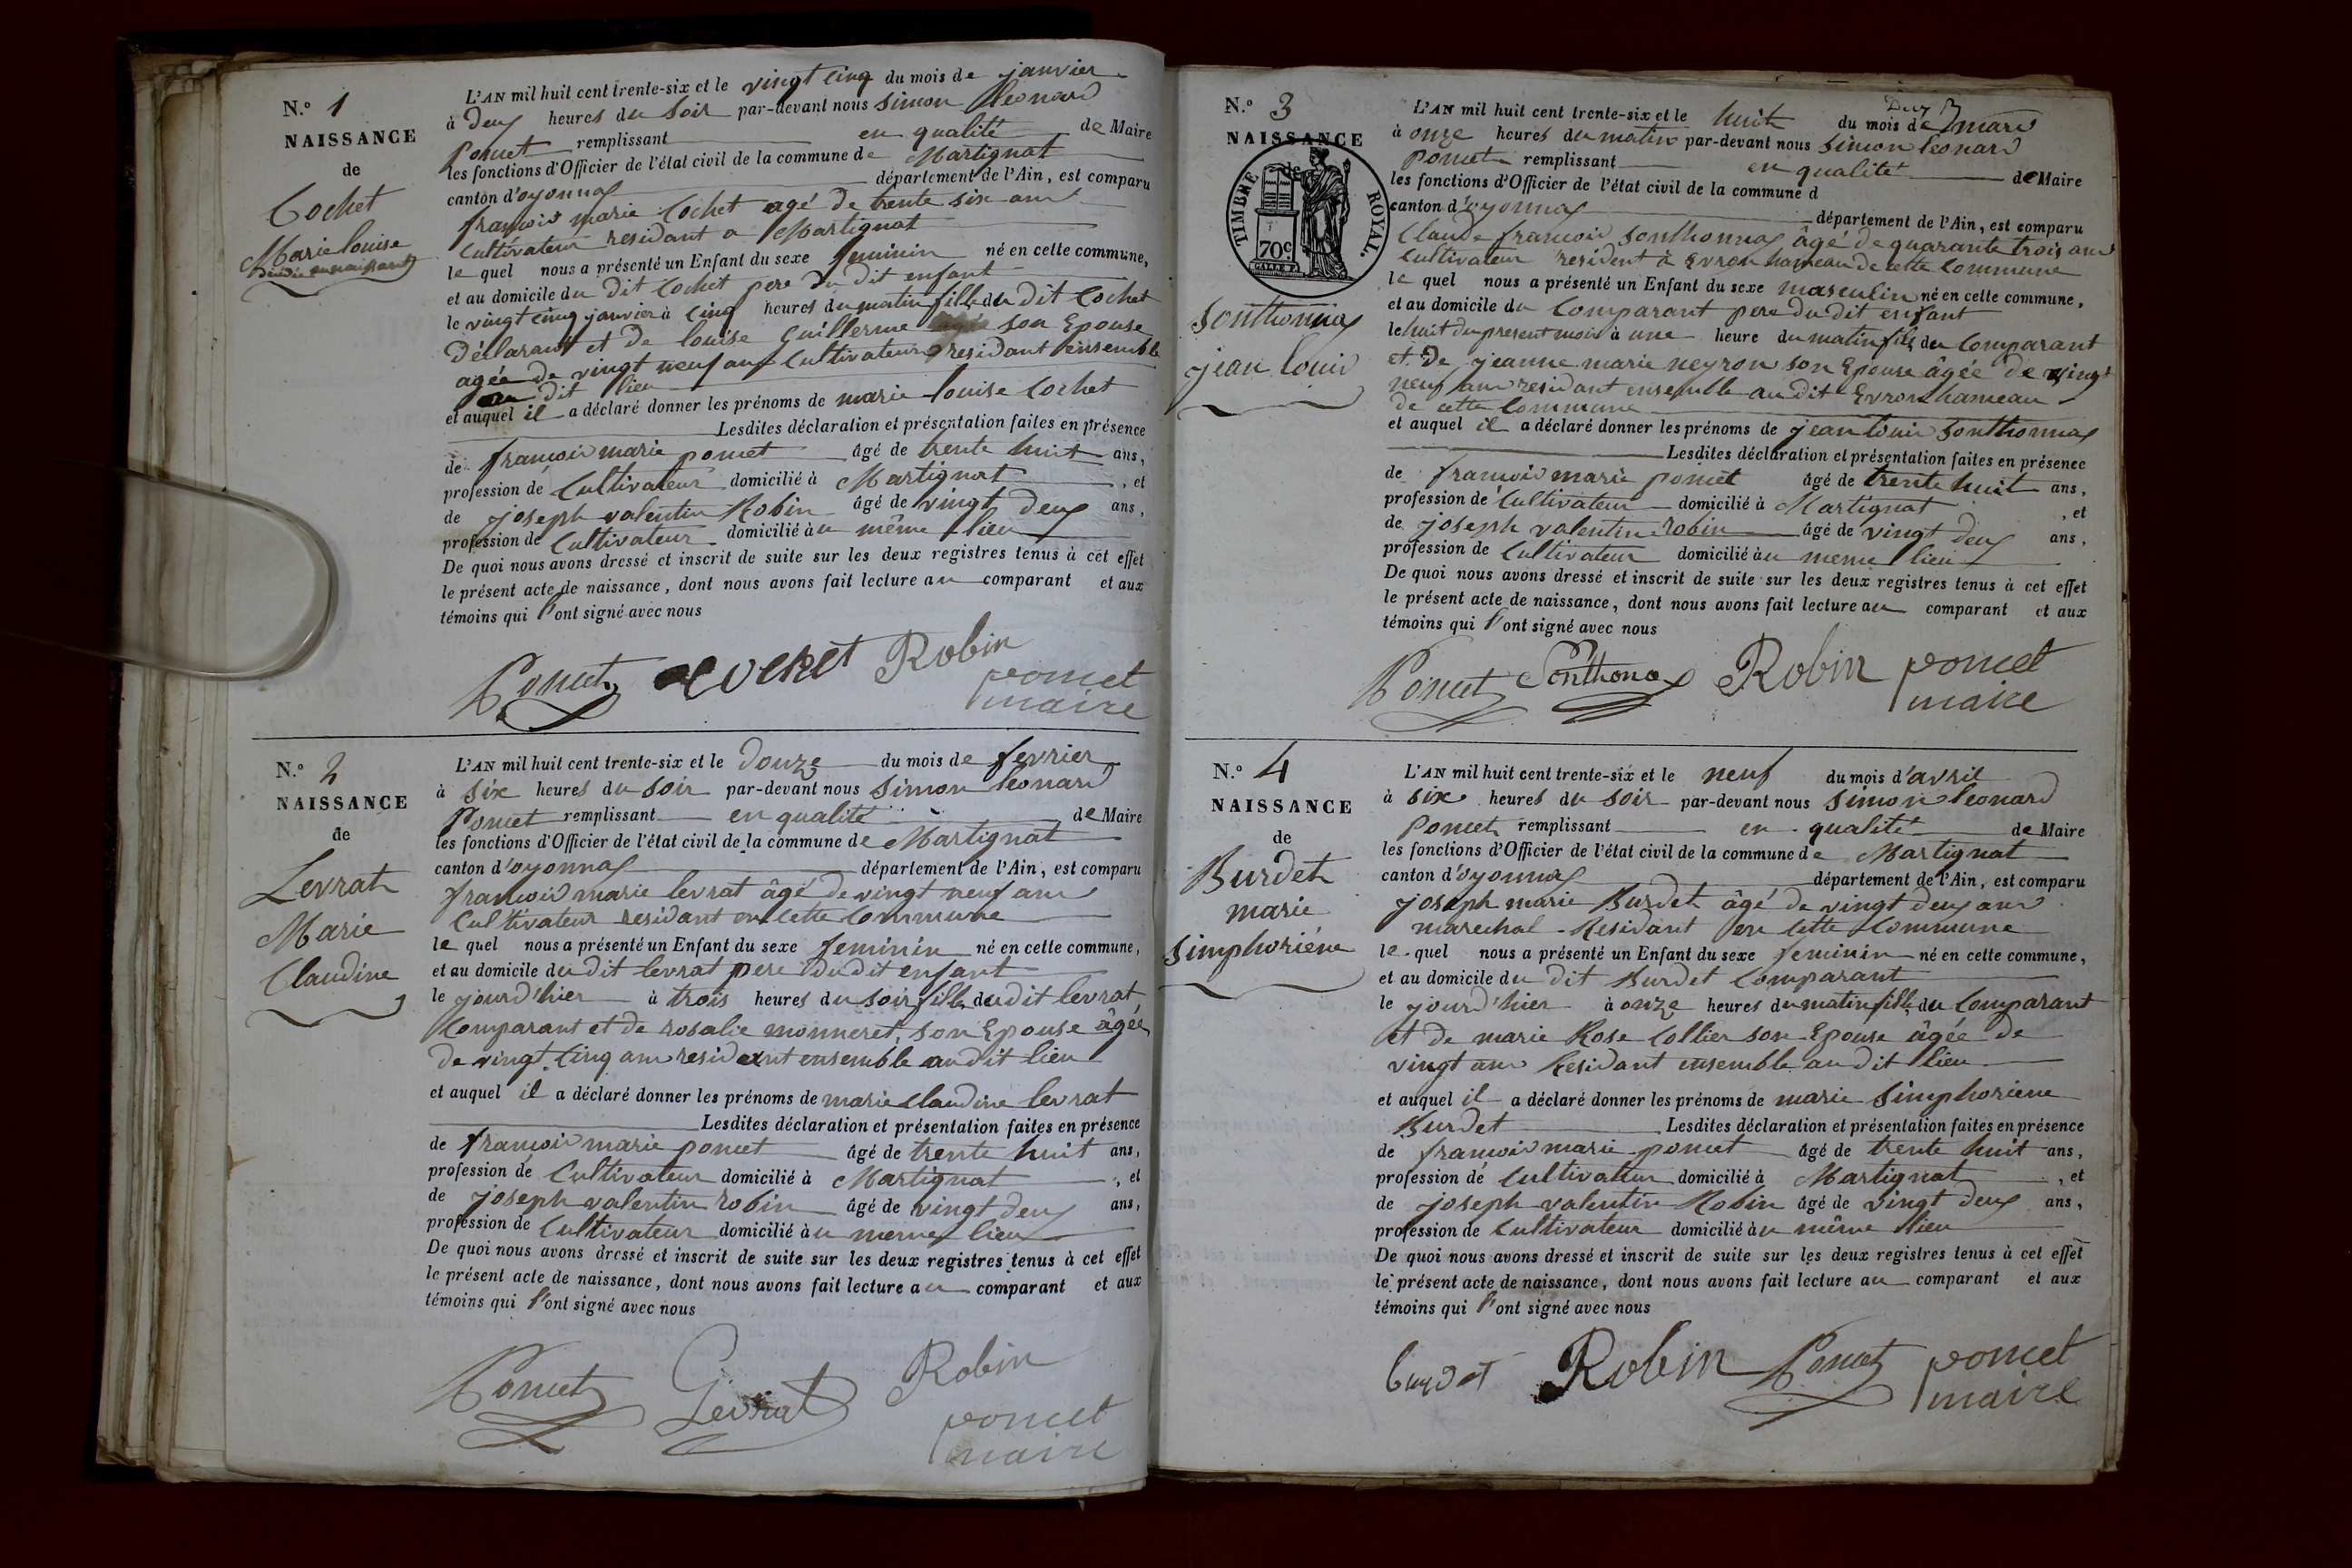 N.º 1
NAISSANCE
de
Cochet
Marie louise
L'AN mil huit cent trente-six et le vingt cinq du mois de janvier
à deux heures du soir par-devant nous simon leonard
Poncet remplissant en qualité de Maire
les fonctions d'Officier de l'état civil de la commune de Martignat
canton d'oyonnax département de l'Ain, est comparu
françois marie Cochet agé de trente six ans
Cultivateur residant a Martignat
le quel nous a présenté un Enfant du sexe feminin né en cette commune,
et au domicile du dit Cochet pere du dit enfant
le vingt cinq janvier à cinq heures du matin fille du dit Cochet
Déclarant et de louise Guillerme son Epouse
agée de vingt neuf ans Cultivateurs residant ensemble
au dit lieu
et auquel il a déclaré donner les prénoms de marie louise Cochet
Lesdites déclaration et présentation faites en présence
de françois marie poncet âgé de trente huit ans,
profession de Cultivateur domicilié à Martignat, et
de joseph valentin Robin âgé de vingt deux ans,
profession de Cultivateur domicilié au même lieu
De quoi nous avons dressé et inscrit de suite sur les deux registres tenus à cet effet
le présent acte de naissance, dont nous avons fait lecture au comparant et aux
témoins qui l'ont signé avec nous
Poncet Cochet Robin
poncet
maire
N.º 2
NAISSANCE
de
Levrat
Marie
Claudine
L'AN mil huit cent trente-six et le douze du mois de fevrier
à six heures du soir par-devant nous simon leonard
Poncet remplissant en qualité de Maire
les fonctions d'Officier de l'état civil de la commune de Martignat
canton d'oyonnax département de l'Ain, est comparu
françois marie levrat âgé de vingt neuf ans
Cultivateur residant en cette Commune
le quel nous a présenté un Enfant du sexe feminin né en cette commune,
et au domicile du dit levrat pere du dit enfant
le jourd'hier à trois heures du soir fille du dit levrat
Comparant et de rosalie monneret, son Epouse âgée
de vingt cinq ans residant ensemble au dit lieu
et auquel il a déclaré donner les prénoms de marie claudine levrat
Lesdites déclaration et présentation faites en présence
de françois marie poncet âgé de trente huit ans,
profession de Cultivateur domicilié à Martignat, et
de joseph valentin robin âgé de vingt deux ans,
profession de Cultivateur domicilié au meme lieu
De quoi nous avons dressé et inscrit de suite sur les deux registres tenus à cet effet
le présent acte de naissance, dont nous avons fait lecture au comparant et aux
témoins qui l'ont signé avec nous
Poncet Levrat Robin
poncet
maire
N.º 3
NAISSANCE
TIMBRE ROYAL.
70c.
Sonthonnax
jean louis
L'AN mil huit cent trente-six et le huit du mois de mars
à onze heures du matin par-devant nous simon leonard
Poncet remplissant en qualité de Maire
les fonctions d'Officier de l'état civil de la commune d
canton d'oyonnax département de l'Ain, est comparu
Claude francois Sonthonnax âgé de quarante trois ans
Cultivateur resident à Evron hameau de cette Commune
le quel nous a présenté un Enfant du sexe masculin né en cette commune,
et au domicile du Comparant pere du dit enfant
le huit du present mois à une heure du matin fils du Comparant
et De jeanne marie neyron son Epouse âgée de vingt
neuf ans residant ensemble au dit Evron hameau
de cette Commune
et auquel il a déclaré donner les prénoms de jean louis Sonthonnax
Lesdites déclaration et présentation faites en présence
de françois marie poncet âgé de trente huit ans,
profession de Cultivateur domicilié à Martignat, et
de joseph valentin robin âgé de vingt deux ans,
profession de Cultivateur domicilié au meme lieu
De quoi nous avons dressé et inscrit de suite sur les deux registres tenus à cet effet
le présent acte de naissance, dont nous avons fait lecture au comparant et aux
témoins qui l'ont signé avec nous
Poncet Sonthonax Robin poncet
maire
N.º 4
NAISSANCE
de
Burdet
marie
Simphoriéne
L'AN mil huit cent trente-six et le neuf du mois d'avril
à six heures du soir par-devant nous simon leonard
Poncet remplissant en qualité de Maire
les fonctions d'Officier de l'état civil de la commune de Martignat
canton d'oyonnax département de l'Ain, est comparu
joseph marie Burdet âgé de vingt deux ans
marechal Residant en cette Commune
le quel nous a présenté un Enfant du sexe feminin né en cette commune,
et au domicile du dit Burdet Comparant
le jourd'hier à onze heures du matin fille du Comparant
et de marie Rose Collier son Epouse âgée de
vingt ans Residant ensemble au dit lieu
et auquel il a déclaré donner les prénoms de marie Simphoriene
Burdet Lesdites déclaration et présentation faites en présence
de francois marie poncet âgé de trente huit ans,
profession de Cultivateur domicilié à Martignat, et
de joseph valentin Robin âgé de vingt deux ans,
profession de Cultivateur domicilié au même lieu
De quoi nous avons dressé et inscrit de suite sur les deux registres tenus à cet effet
le présent acte de naissance, dont nous avons fait lecture au comparant et aux
témoins qui l'ont signé avec nous
burdet Robin Poncet poncet
maire